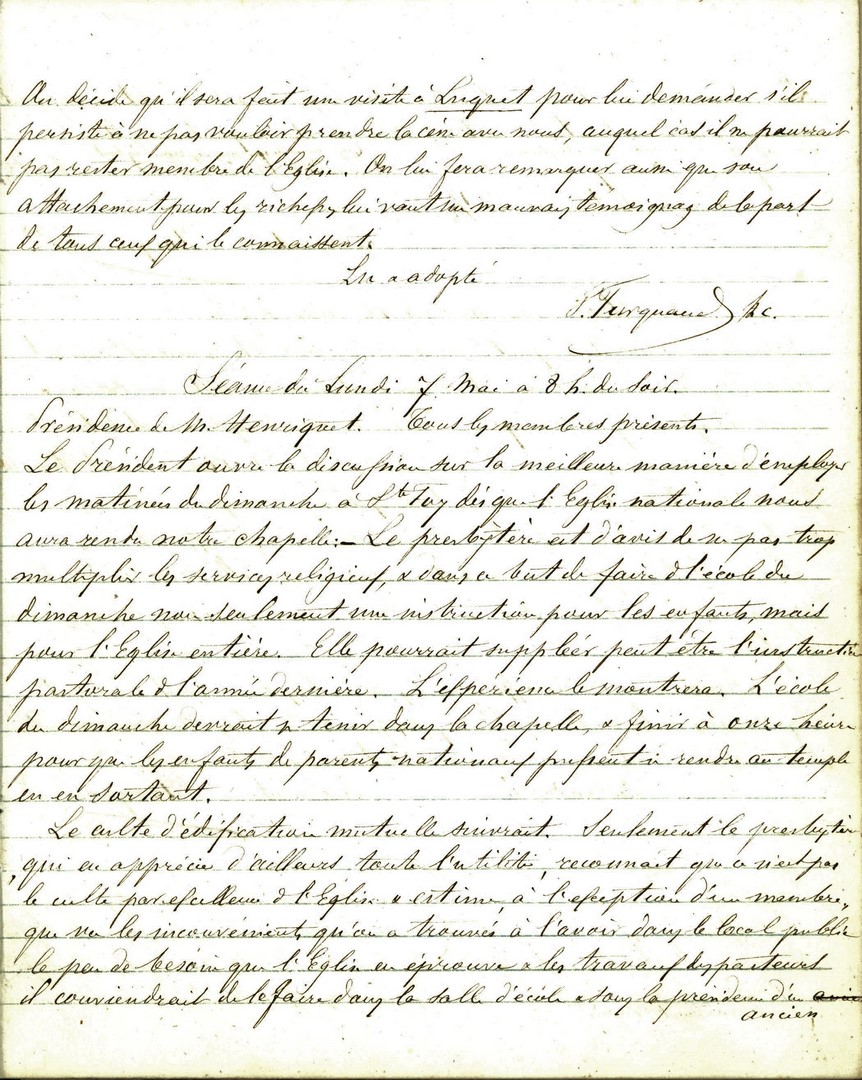 On décide qu'il sera fait une visite à Luquet pour lui demander s'il
persiste à ne pas vouloir prendre la cène avec nous, auquel cas il ne pourrait
pas rester membre de l'Eglise. On lui fera remarquer aussi que son
attachement pour les richesses lui vaut un mauvais témoignage de la part
de tous ceux qui le connaissent.
Lu & adopté
Turquand
Séance du Lundi 7 Mai à 8 h. du soir.
Présidence de M. Henriquet. Tous les membres présents.
Le Président ouvre la discussion sur la meilleure manière d'employer
les matinées du dimanche à Ste Foy dès que l'Eglise nationale nous
aura rendu notre chapelle:- Le presbytère est d'avis de ne pas trop
multiplier les services religieux, & dans ce but de faire de l'école du
dimanche non seulement une instruction pour les enfants, mais
pour l'Eglise entière. Elle pourrait suppléer peut être l'instruction
pastorale de l'année dernière. L'expérience le montrera. L'école
du dimanche devrait se tenir dans la chapelle, & finir à onze heures
pour que les enfants de parents nationaux pussent se rendre au temple
en en sortant.
Le culte d'édification mutuelle suivrait. Seulement le presbytère
, qui en apprécie d'ailleurs toute l'utilité, reconnait que ce n'est pas
le culte par excellence de l'Eglise & estime, à l'exception d'un membre,
que vu les inconvénients qu'on a trouvés à l'avoir dans le local public
le peu de besoin que l'Eglise en éprouve & les travaux des pasteurs
il conviendrait de le faire dans la salle d'école & sous la présidence d'un
ancien